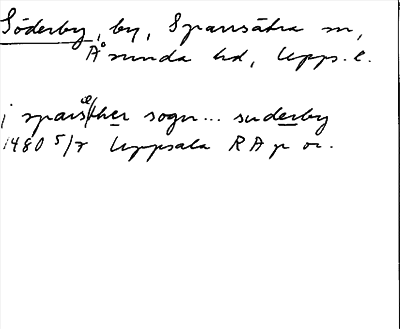 Söderby, by, Sparrsätra sn,
Åsunda hd, Upps. l.
i spars æ/ther sogn... suderby
1480 5/7 Uppsala RAp or.